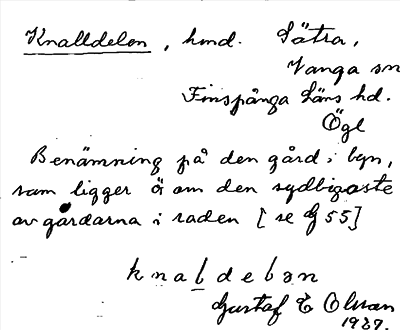 Knalldelen, hmd. Sätra,
Vånga sn
Finspånga Läns hd.
Ögl
Benämning på den gård i byn,
som ligger ö om den sydligaste
av gårdarna i raden [se G 55]
knaldelən
Gustaf E Olsson
1937.